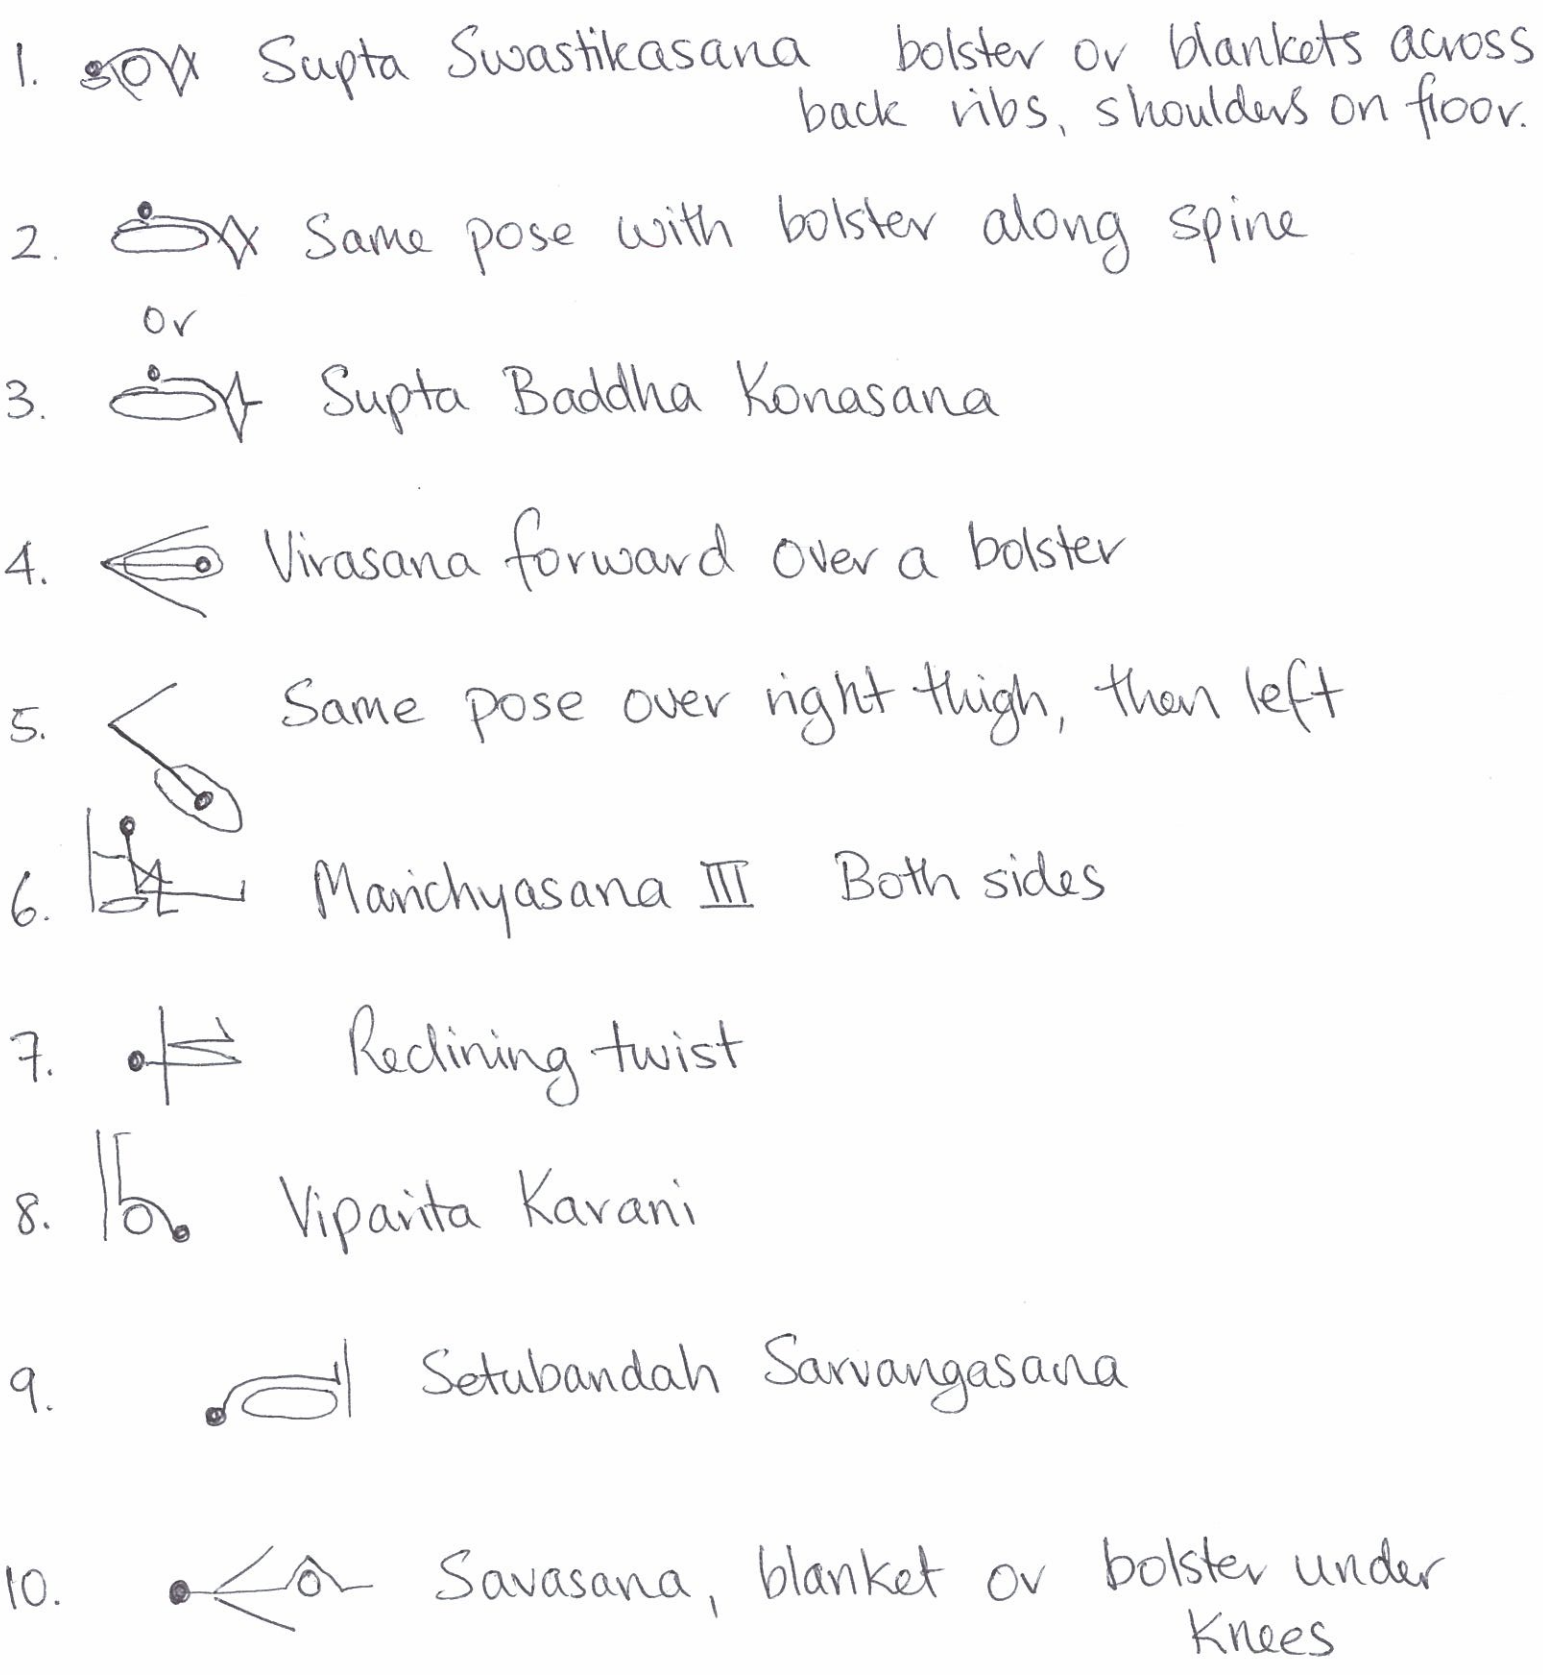 1. Supta Swastikasana bolster or blankets across
back ribs, shoulders on floor.
2. Same pose with bolster along spine
or
3. Supta Baddha Konasana
4. Virasana forward over a bolster
5. Same pose over right thigh, then left
6. Marichyasana III Both sides
7. Reclining twist
8. Viparita Karani
9. Setubandah Sarvangasana
10. Savasana, blanket or bolster under
Knees